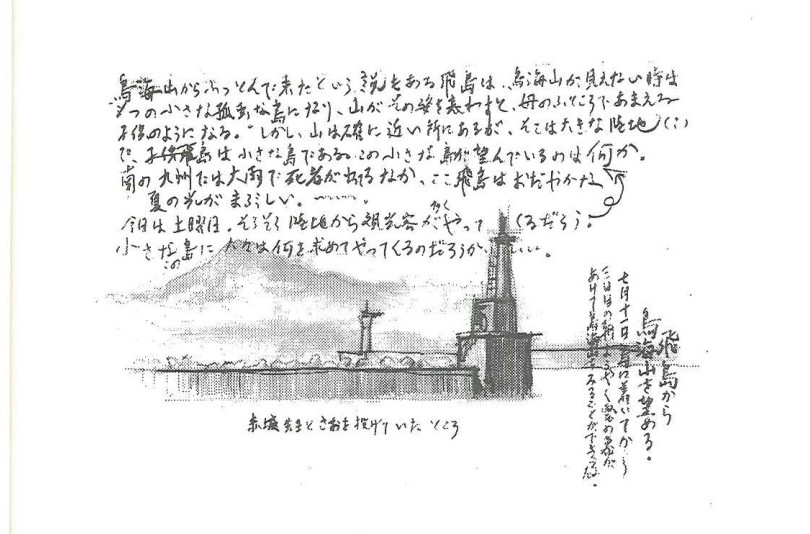 鳥海山からふっとんで来たという説もある飛島は、鳥海山が見えない時は
一つの小さな孤独な島になり、山がその姿を表わすと、母のふところであまえる
子供のようになる。しかし、山は確に近い所にあるが、そこは大きな陸地
だ、飛島は小さな島である。この小さな島が望んでいるのは何か。
南の九州では大雨で死者が出てるなか、ここ飛島はおだやかな
夏の光がまぶしい。
今日は土曜日。そろそろ陸地から観光客が多くやってくるだろう。
この小さな島に人々は何を求めてやってくるのだろうか
赤坂先生とさおを投げていたところ
飛島から
鳥海山を望める。
七月十一日 島に着いてから
三日目の朝 ようやく雲の幕が
あけて鳥海山をみることができた。